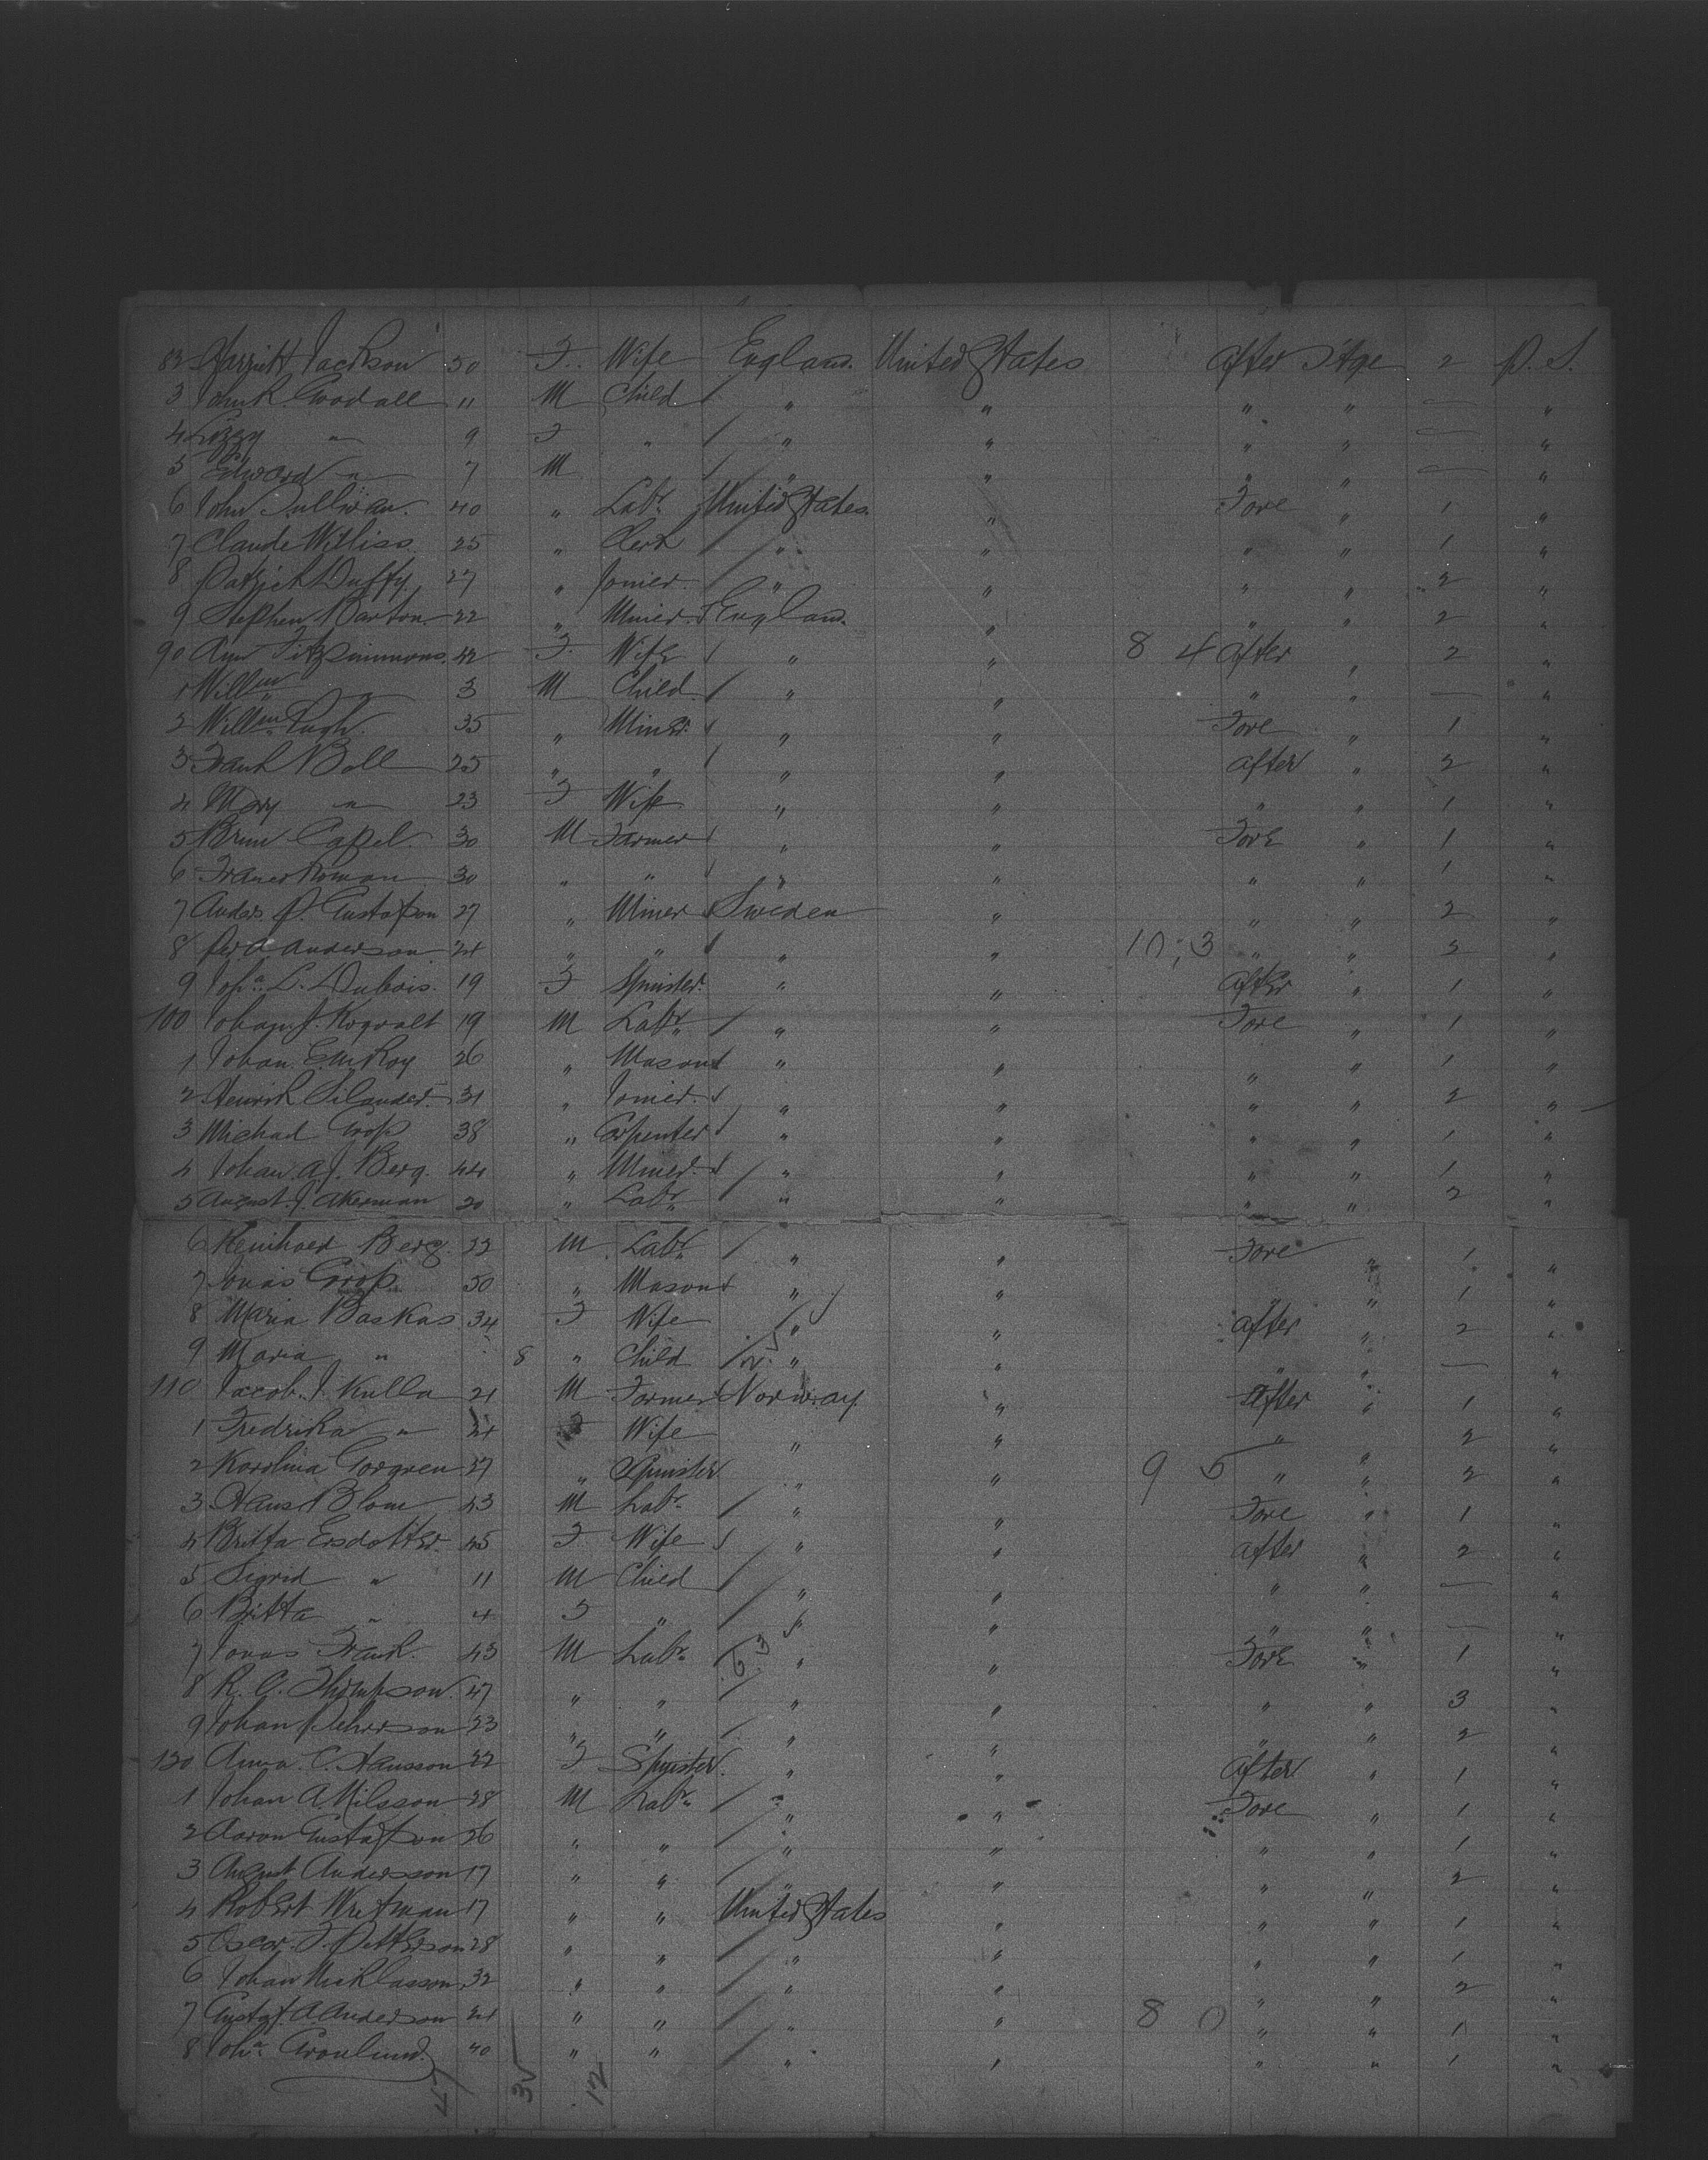 82 Harriett Jackson 50 F. Wife England. United States After Stge 2 P. S.
3 John R. Goodall 11 M Child " " " " — "
4 Lizzy " 9 F " " " " " — "
5 Edward " 7 M " " " " — "
6 John Sullivan. 40 " Labr. United States. " Fore " 1 "
7 Claude Williss 25 " Clerk " " " " 1 "
8 Patrick Duffy 27 " Joiner. " " " " 2 "
9 Stephen Barton. 22 " Miner. England. " " " 2 "
90 Ann Fitzsimmons. 42 F. Wife " " 8 4 After " 2 "
1 Willm " 3 M Child " " " " — "
2 Willm Pugh. 35 " Miner. " " Fore " 1 "
3 Frank Boll 25 " " " " After " 2 "
4 Mary " 23 F Wife " " " " 1 "
5 Capel. 30 M Farmer " " Fore " 1 "
6 30 " " " " " " 1 "
7 Anders P. Gustafson 27 " Miner Sweden " " " 2 "
8 Per A Anderson. 24 " " " " 10; 3 " " 2 "
9 Joha. L. Dubois. 19 F Spinster. " " After " 1 "
100 Johan J. 19 M Labr. " " Fore " 1 "
1 Johan 26 " Mason " " " " 1 "
2 Henrik Silander. 31 " Joiner. " " " " 2 "
3 Michael 38 " Carpenter " " " " 1 "
4 Johan A. J. Berg. 44 " Miner. " " " " 1 "
5 August. J. Akerman 20 " Labr. " " " " 2 "
6 Reinhoed Berg. 22 M. Labr. " " Fore " 1 "
7 Jonas 50 " Mason " " " " 1 "
8 Maria Baskas 34 F Wife " " After " 2 "
9 Maria " 8 " Child " " " " — "
110 Jacob. J. Kulla 21 M Farmer Norway. " After " 1 "
1 Fredrika " 24 Wife " " " " 2 "
2 Karolina Gorgren 27 " Spinster " " 9 5 " " 2 "
3 Hans Blom 43 M Labr. " " Fore " 1 "
4 Britta Ersdotter. 45 F Wife " " After " 2 "
5 Sigrid " 11 M Child " " " " — "
6 Britta " 4 F " " " " " — "
7 Jonas Frank. 43 M Labr. " " Fore " 1 "
8 R. C. Thompson. 47 " " " " " " 3 "
9 Johan Pehrson 23 " " " " " " 2 "
120 Anna. C. Hansson 22 F Spinster. " " After " 1 "
1 Johan A. Nilsson 28 M Labr. " " Fore " 1 "
2 Aaron Gustafson 26 " " " " " " 1 "
3 August Andersson 17 " " " " " " 2 "
4 Robert 17 " " United States " " " 1 "
5 Oscar. F. Petterson 28 " " " " " " 1 "
6 Johan Nicklasson. 32 " " " " " " 2 "
7 Gustaf. A. Anderson 24 " " " " 8 0 " " 1 "
8 Joha. Gronlund. 40 " " " " " " 1 "
12